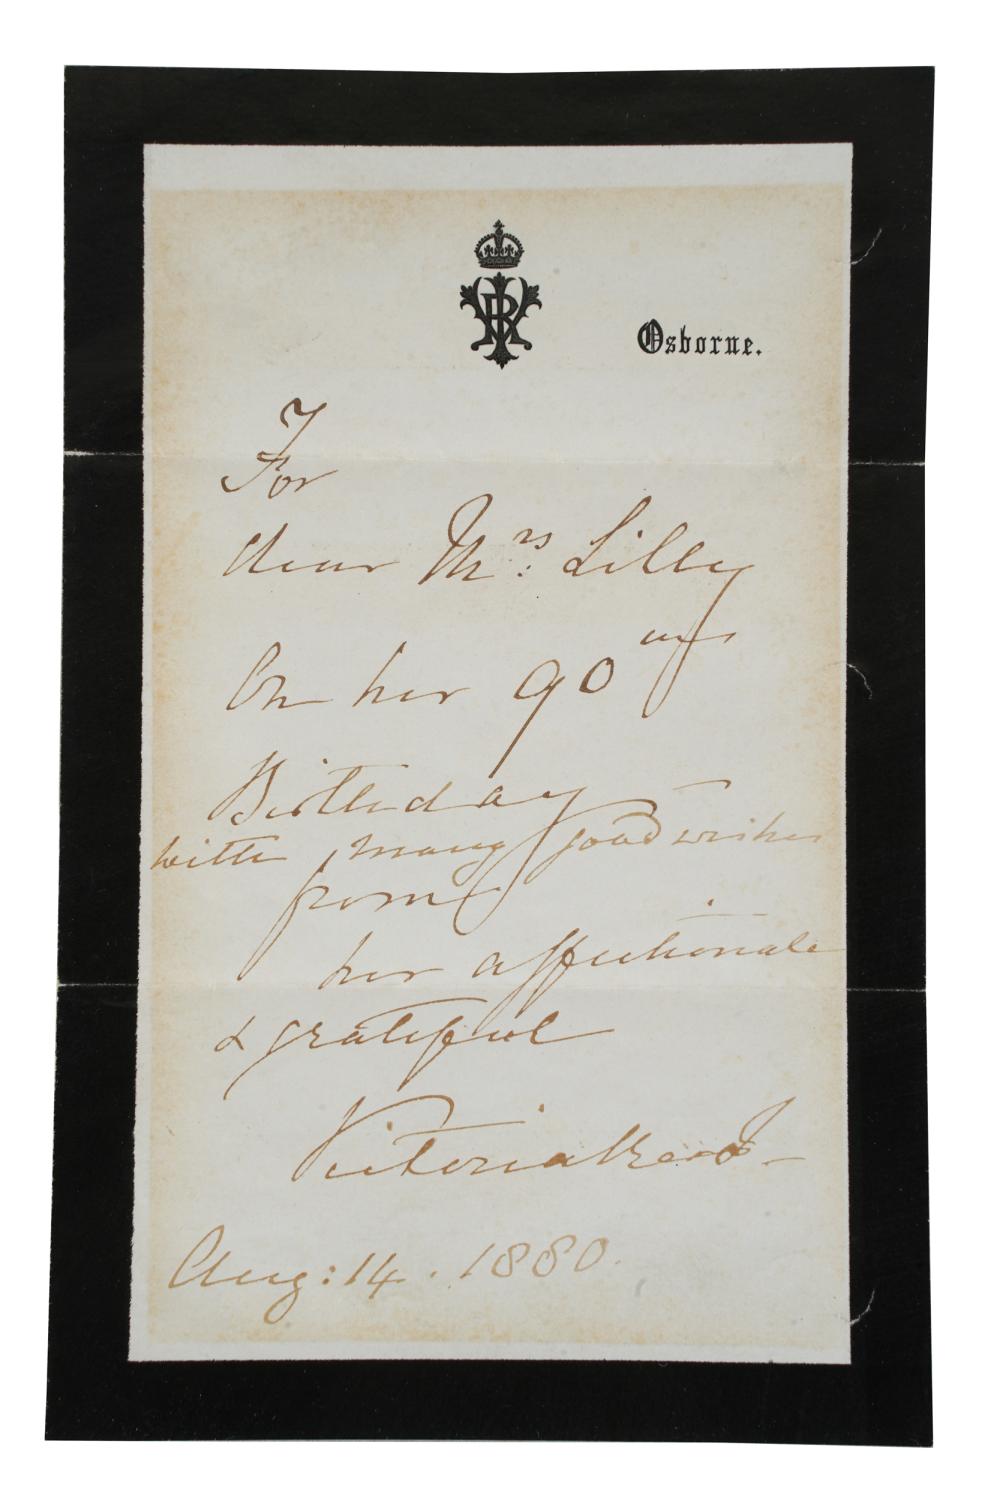 VRI
Osborne.
For
dear Mrs. Lilly
On her 90
Birthday
with many good wishes
from
her affectionate
& grateful
Victoria R
Aug: 14. 1880.